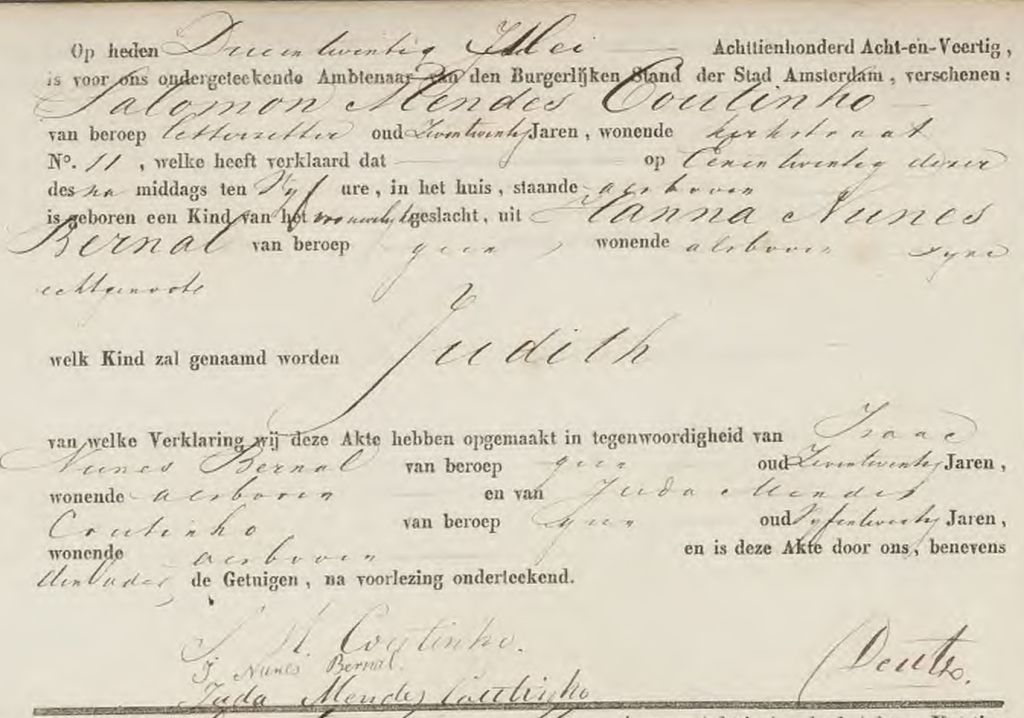 Op heden Drieentwintig Mei Achttienhonderd Acht-en-Veertig,
is voor ons ondergeteekende Ambtenaar van den Burgerlijken Stand der Stad Amsterdam, verschenen:
Salomon Mendes Coutinho
van beroep letterzetter oud Zevenentwintig Jaren, wonende kerkstraat
No. 11, welke heeft verklaard dat op Eenentwintig dezer
des na middags ten Vyf ure, in het huis, staande alsboven
is geboren een Kind van het vrouwelyk geslacht, uit Hanna Nunes
Bernal van beroep geen, wonende alsboven zyne
echtgenoote
welk Kind zal genaamd worden Judith
van welke Verklaring wij deze Akte hebben opgemaakt in tegenwoordigheid van Isaac
Nunes Bernal van beroep geen oud Zevenentwintig Jaren,
wonende alsboven en van Juda Mendes
Coutinho van beroep geen oud Vyfentwintig Jaren,
wonende alsboven en is deze Akte door ons, benevens
den Vader, de Getuigen, na voorlezing onderteekend.
S. M. Coutinho.
J. Nunes Bernal.
Deutz.
Juda Mendes Coutinho